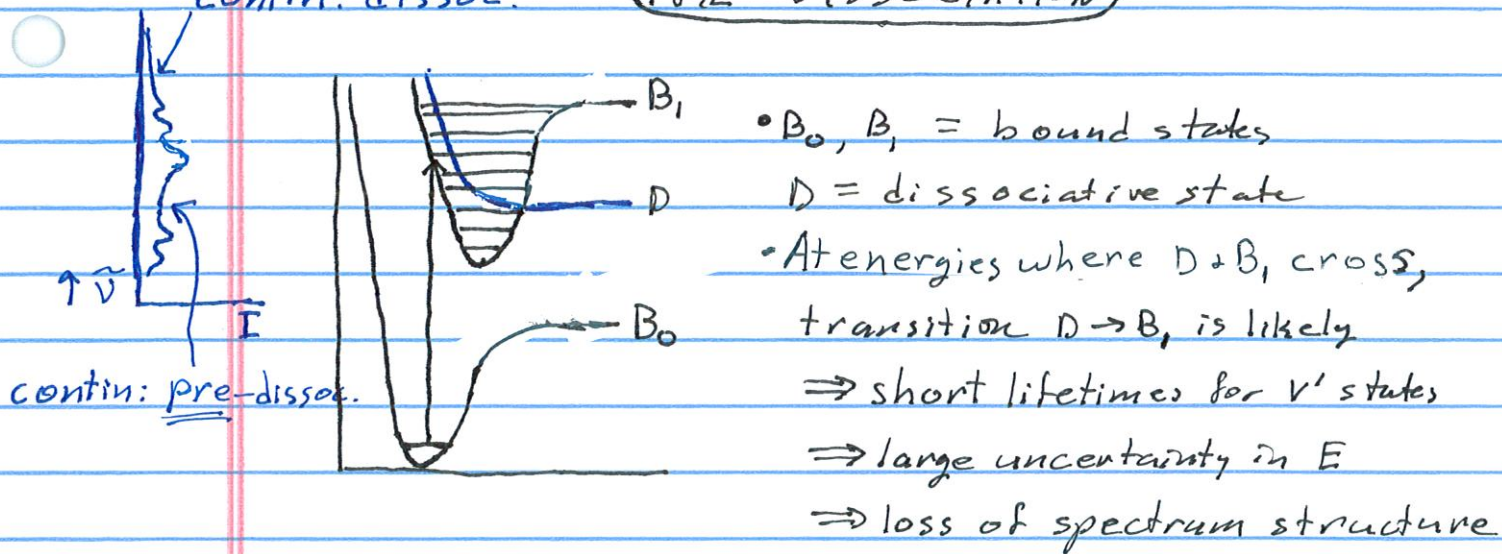 contin. dissoc.
PRE-DISSOCIATION
B₁
D
B₀
↑ ν̃
I
contin: pre-dissoc.
• B₀, B₁ = bound states
D = dissociative state
• At energies where D & B₁ cross,
transition D → B₁ is likely
⇒ short lifetimes for v' states
⇒ large uncertainty in E
⇒ loss of spectrum structure